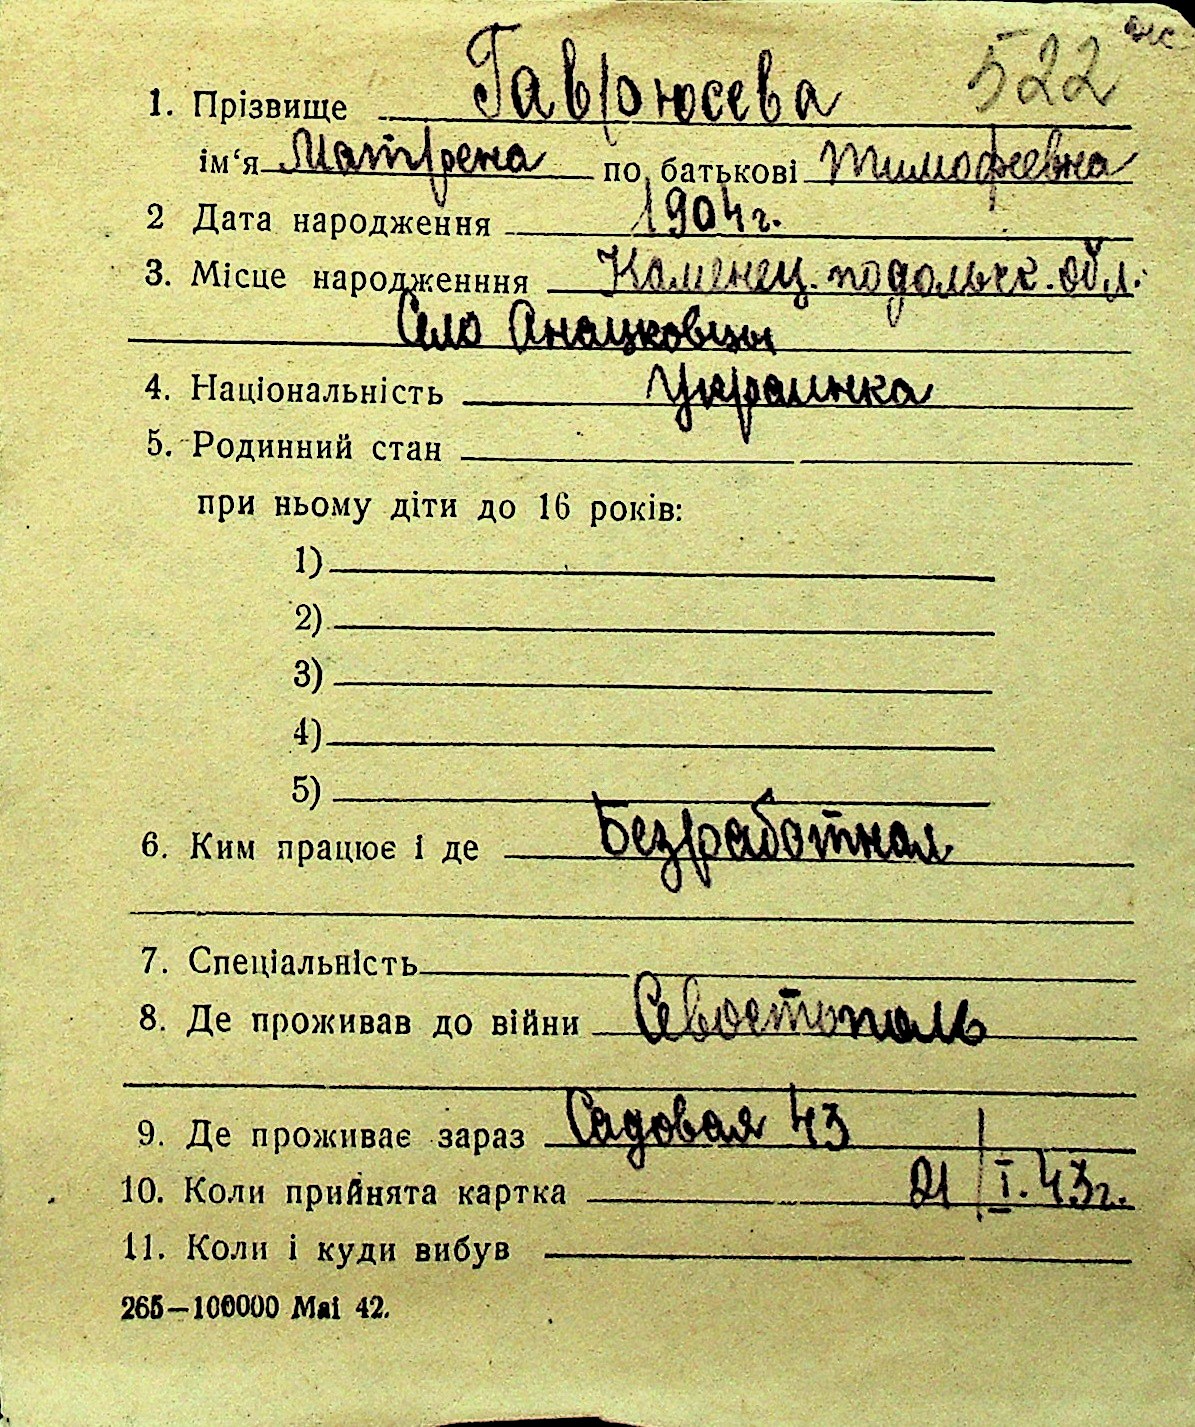 522
1. Прізвище Гаврюсева
ім‘я Матрена по батькові Тимофеевна
2 Дата народження 1904 г.
3. Місце народженння Каменец. подольск. обл.
Село Анацковцы
4. Національність Украинка
5. Родинний стан
при ньому діти до 16 років:
1)
2)
3)
4)
5)
6. Ким працює і де Безработная
7. Спеціальність
8. Де проживав до війни Севостополь
9. Де проживає зараз Садовая 43
10. Коли прийнята картка 21/I.43г.
11. Коли і куди вибув
265—100000 Маі 42.